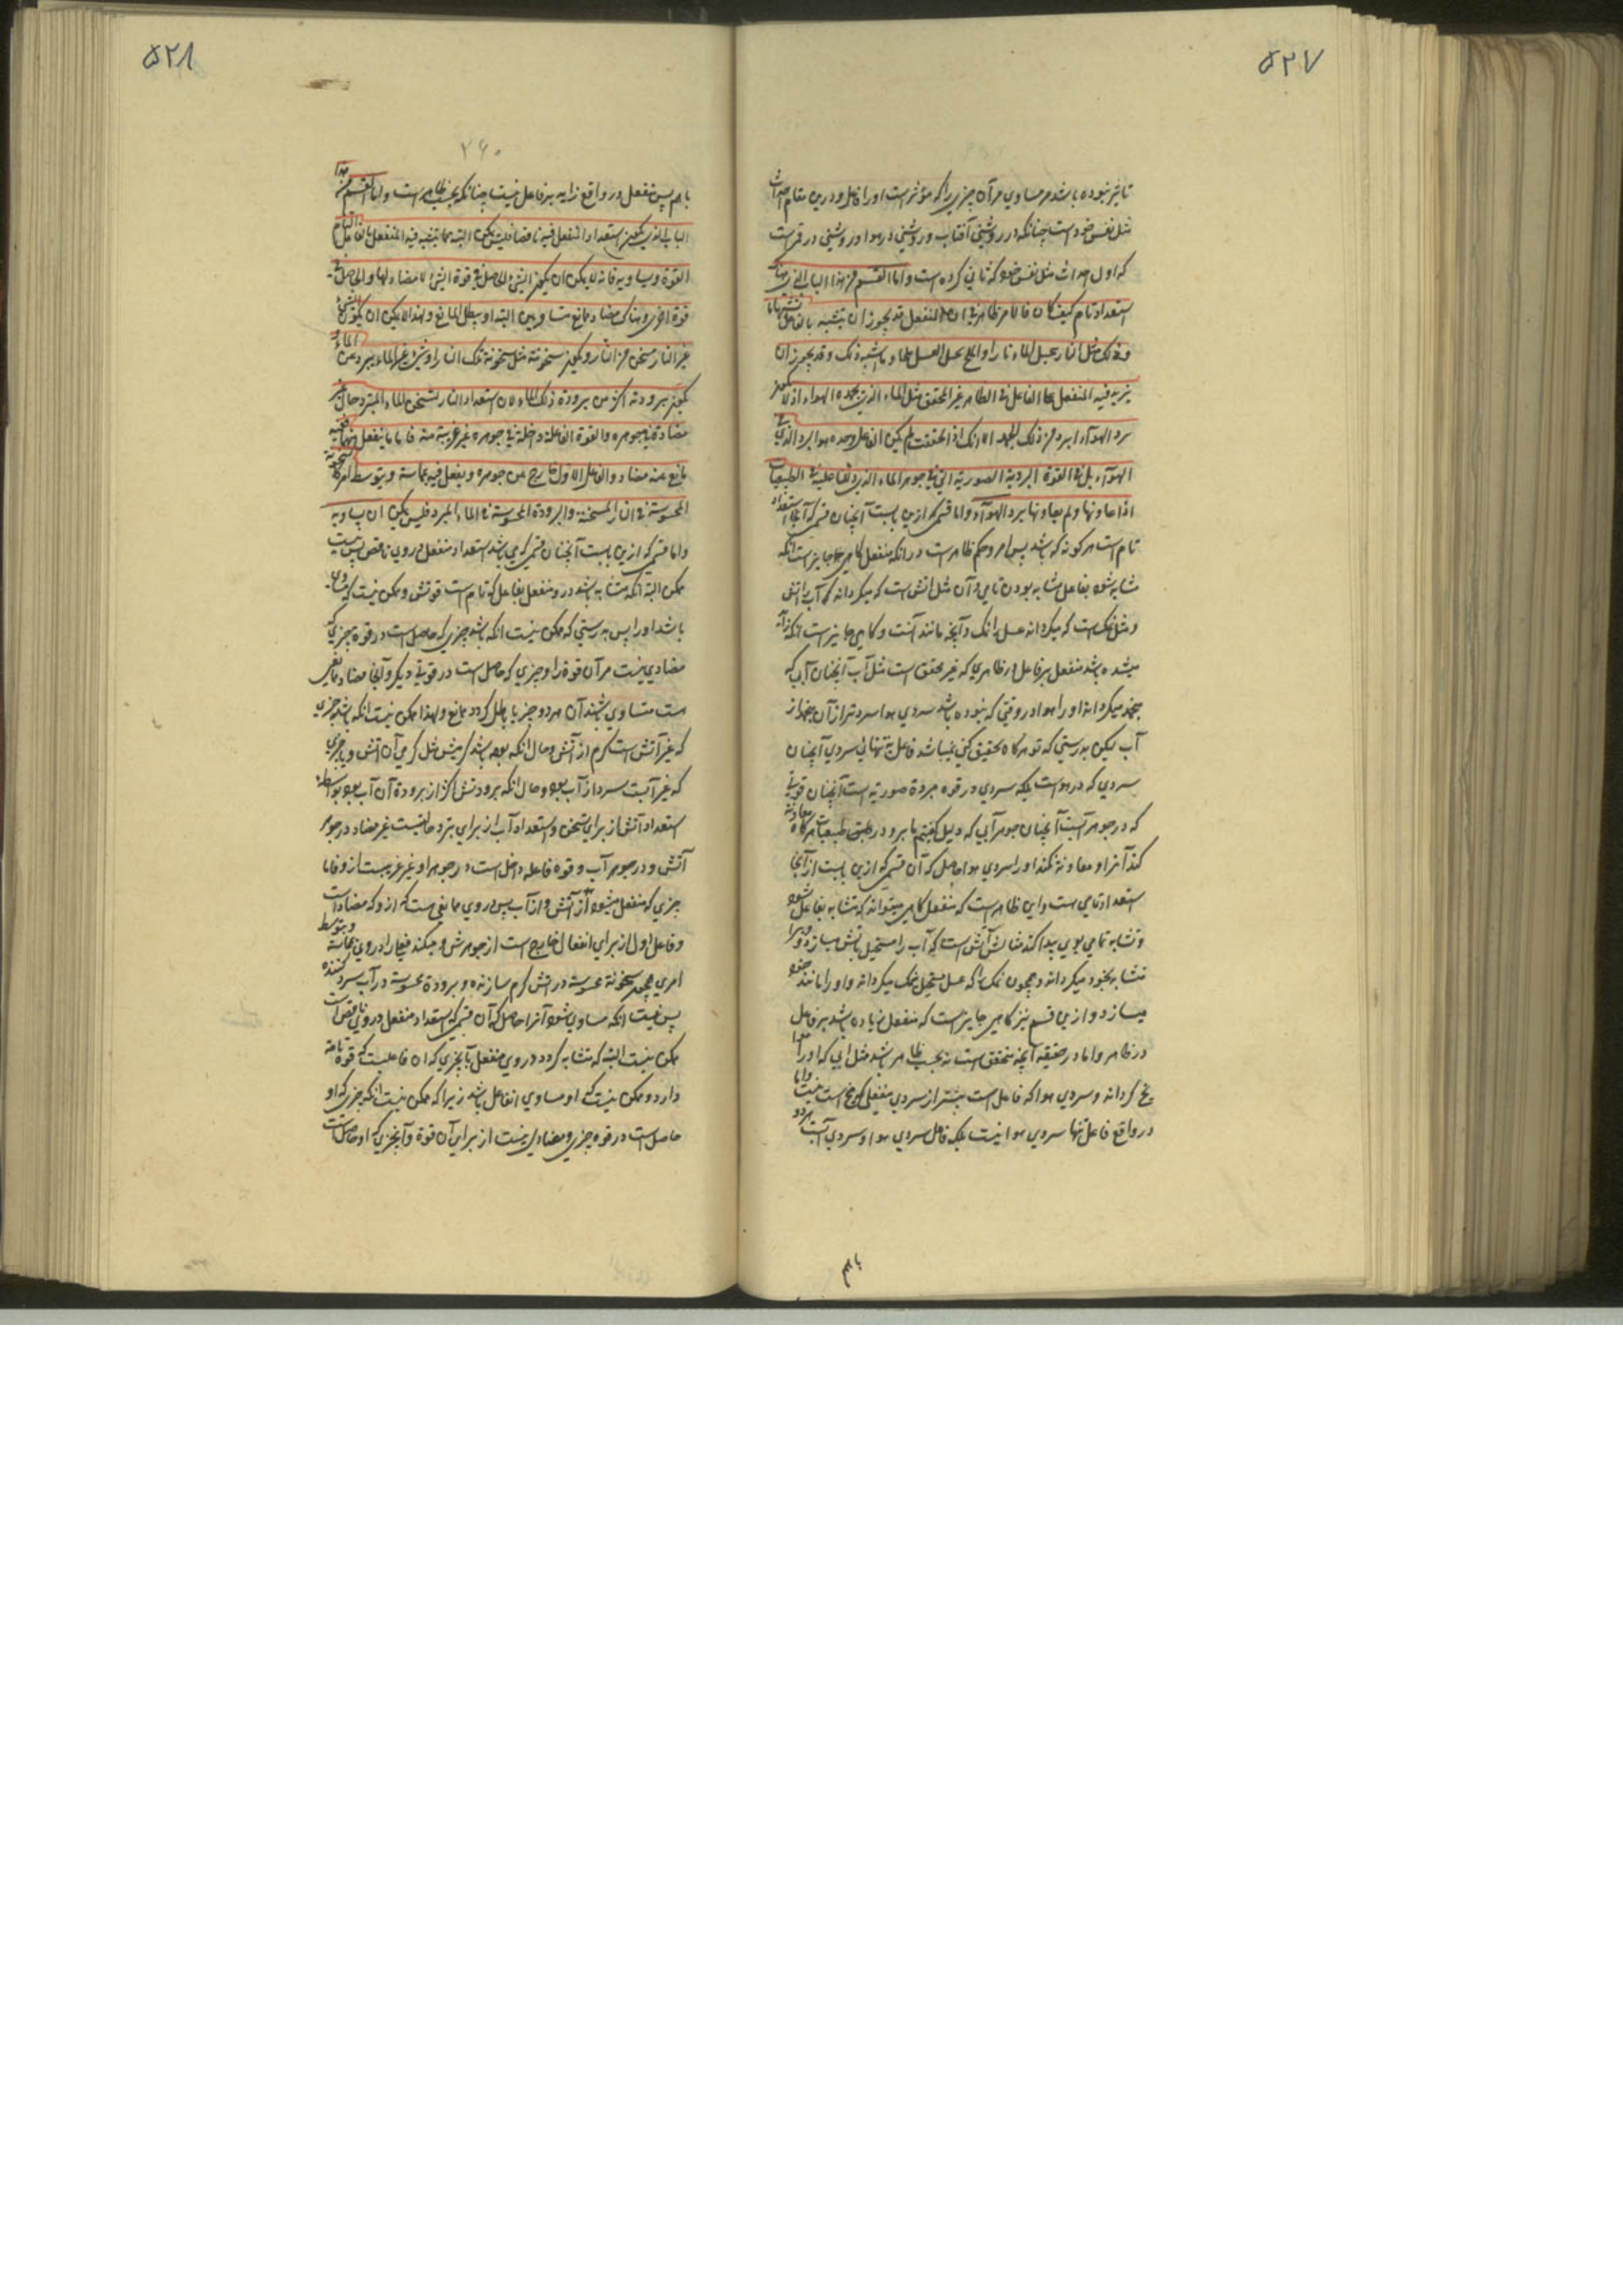 ۵۲۷
تاثیر نبوده باشد مر مساوی مر آن چیزی را که مؤثر است او را فاعل و درین مقام احداث
مثل نفس خود است چنانکه در روشنی آفتاب و روشنی در هوا و روشنی در قمر است
که اول احداث مثل نفس خود که ثانی کرده است واما القسم من هذا الباب الذی هناک
استعداد تام کیف کان فالامر ظاهر فی ان المنفعل قد یجوز ان یتشبه بالفاعل تشبها تاما
وذلک مثل النار تحیل الماء نارا والملح یحیل العسل ملحا وما اشبه ذلک وقد یجوز ان
یزید فیه المنفعل علی الفاعل فی الظاهر غیر المحقق مثل الماء الذی یجمده الهواء اذ لا یکون
برد الهواء ابرد من ذلک الجمد الا انک اذا حققت لم یکن الفاعل وحده هو البرد الذی فی
الهواء بل فی القوة المبردة الصوریة التی فی جوهر الماء الذی دللنا علیه فی الطبیعیات
اذا عاونها ولم یعاوقها برد الهواء واما قسمی که ازین بابست آنچنان قسمی که آنجا استعداد
تام است هر گونه که باشد پس امر و حکم ظاهر است در انکه منفعل گاهی جایز است انکه
مشابه شود بفاعل مشابه بودن تامی و آن مثل آتش است که میگرداند آب را آتش
و مثل نمک است که میگرداند عسل را نمک و آنچه مانند آنست و گاهی جایز است آنکه زاید
میشده باشد منفعل بر فاعل در ظاهری که غیر محقق است مثل آب آنچنان آب که
جمد میگرداند او را هوا در وقتی که نبوده باشد سردی هوا سردتر از آن جمد از
آب لیکن بدرستی که تو هرگاه تحقیق کنی نمیباشد فاعل بتنهائی سردی آنچنان
سردی که در هواست بلکه سردی در قوه مبردة صوریه است آنچنان قوتی
که در جوهر آبست آنچنان جوهر آبی که دلیل گفتیم ما برو در طبیعیات هرگاه معاونة
کند آنرا و معاوقه نکند او را سردی هوا حاصل که آن قسمی که ازین بابست از آنجا
استعداد تامی هست و این ظاهر است که منفعل گاهی میتواند که متشابه بفاعل شود
و تشابه تامی بوی پیدا کند مثالش آتش است که آب را مستحیل باتش میسازد و ویرا
متشابه بخود میگرداند و همچون نمک را که عسل مستحیل بنمک میگرداند و او را مانند خود
میسازد و ازین قسم نیز گاهی جایز است که منفعل زیاده باشد بر فاعل
در ظاهر و اما در حقیقه آنچه متحقق است نه بحسب ظاهر باشد مثل آبی که او را هوا
یخ گرداند و سردی هوا که فاعل است بیشتر از سردی منفعلی که یخ است نیست واما
در واقع فاعل تنها سردی هوا نیست بلکه فاعل سردی هوا و سردی آبست هر دو
باهم
۵۲۸
۲۶۰
باهم پس منفعل در واقع زاید بر فاعل نیست چنانکه بحسب ظاهر است واما القسم من هذا
الباب الذی یکون استعداد المنفعل فیه ناقصا فلیس یمکن البتة مما یتشبه فیه المنفعل بالفاعل التام
القوة ویساویه فانه لا یمکن ان یکون الشئ الحاصل فی قوة الشئ لا مضاد لها والحاصل فی
قوة اخری وهناک مضاد ممانع متساویین البتة او یبطل الممانع ولهذا لا یمکن ان یکون شئ
غیر النار مسخن من النار ویکون سخونته مثل سخونة تلک النار او شئ غیر الماء یبرد من الماء و
یکون برودته اکثر من برودة ذلک الماء لان استعداد النار لتسخن والماء للتبرد حال غیر
مضادة فی جوهره والقوة الفاعلة داخلة فی جوهره غیر غریبة منه فاما ما ینفعل منهما ففیه
مانع عنه مضاد والفاعل الاول خارج عن جوهره ویفعل فیه بمماسة وبتوسط امر کالسخونة
المحسوسة فی النار المسخنة والبرودة المحسوسة فی الماء المبرد فلیس یمکن ان یساویه
واما قسمی که ازین بابست آنچنان قسمی که می باشد استعداد منفعل در وی ناقص پس نیست
ممکن البته انکه متشابه باشد درو منفعل بفاعل که تام است قوتش و ممکن نیست که مساوی
باشد او را پس بدرستی که ممکن نیست انکه باشد چیزی که حاصل است در قوه چیزی که
مضادی نیست مر آن قوة را و چیزی که حاصل است در قوتی دیگر و آنجا مضاد ممانعی
هست متساوی باشند آن هر دو چیز یا باطل گردد ممانع ولهذا ممکن نیست انکه باشد چیزی
که غیر آتش است گرم از آتش و حال انکه بوده باشد گرمیش مثل گرمی آن آتش و یا چیزی
که غیر آبست سرد از آب بود و حال انکه برودتش اکثر از برودة آن آب بود بواسطه
استعداد آتش از برای تسخن و استعداد آب از برای تبرد حالتیست غیر مضاد در جوهر
آتش و در جوهر آب و قوه فاعله داخل است در جوهر او غیر غریبست ازو فاما
چیزی که منفعل میشود از آتش و از آب پس در وی مانعی است که ازو که مضاد است
و فاعل اول از برای انفعال خارج است از جوهرش و میکند فعل را در وی بمماسه و بتوسط
امری همچو سخونة محسوسه در آتش گرم سازنده و برودة محسوسه در آب سرد کننده
پس نیست انکه مساوی شود آنرا حاصل که آن قسمی که استعداد منفعل در وی ناقص است
ممکن نیست البته که متشابه گردد در وی منفعل بآنچیزی که آن فاعلیست که قوة تامه
دارد و ممکن نیست که او مساوی آنفاعل باشد زیرا که ممکن نیست انکه چیزی که او
حاصل است در قوه چیزی و مضادی نیست از برای آن قوة و آنچیزی که او حاصل است